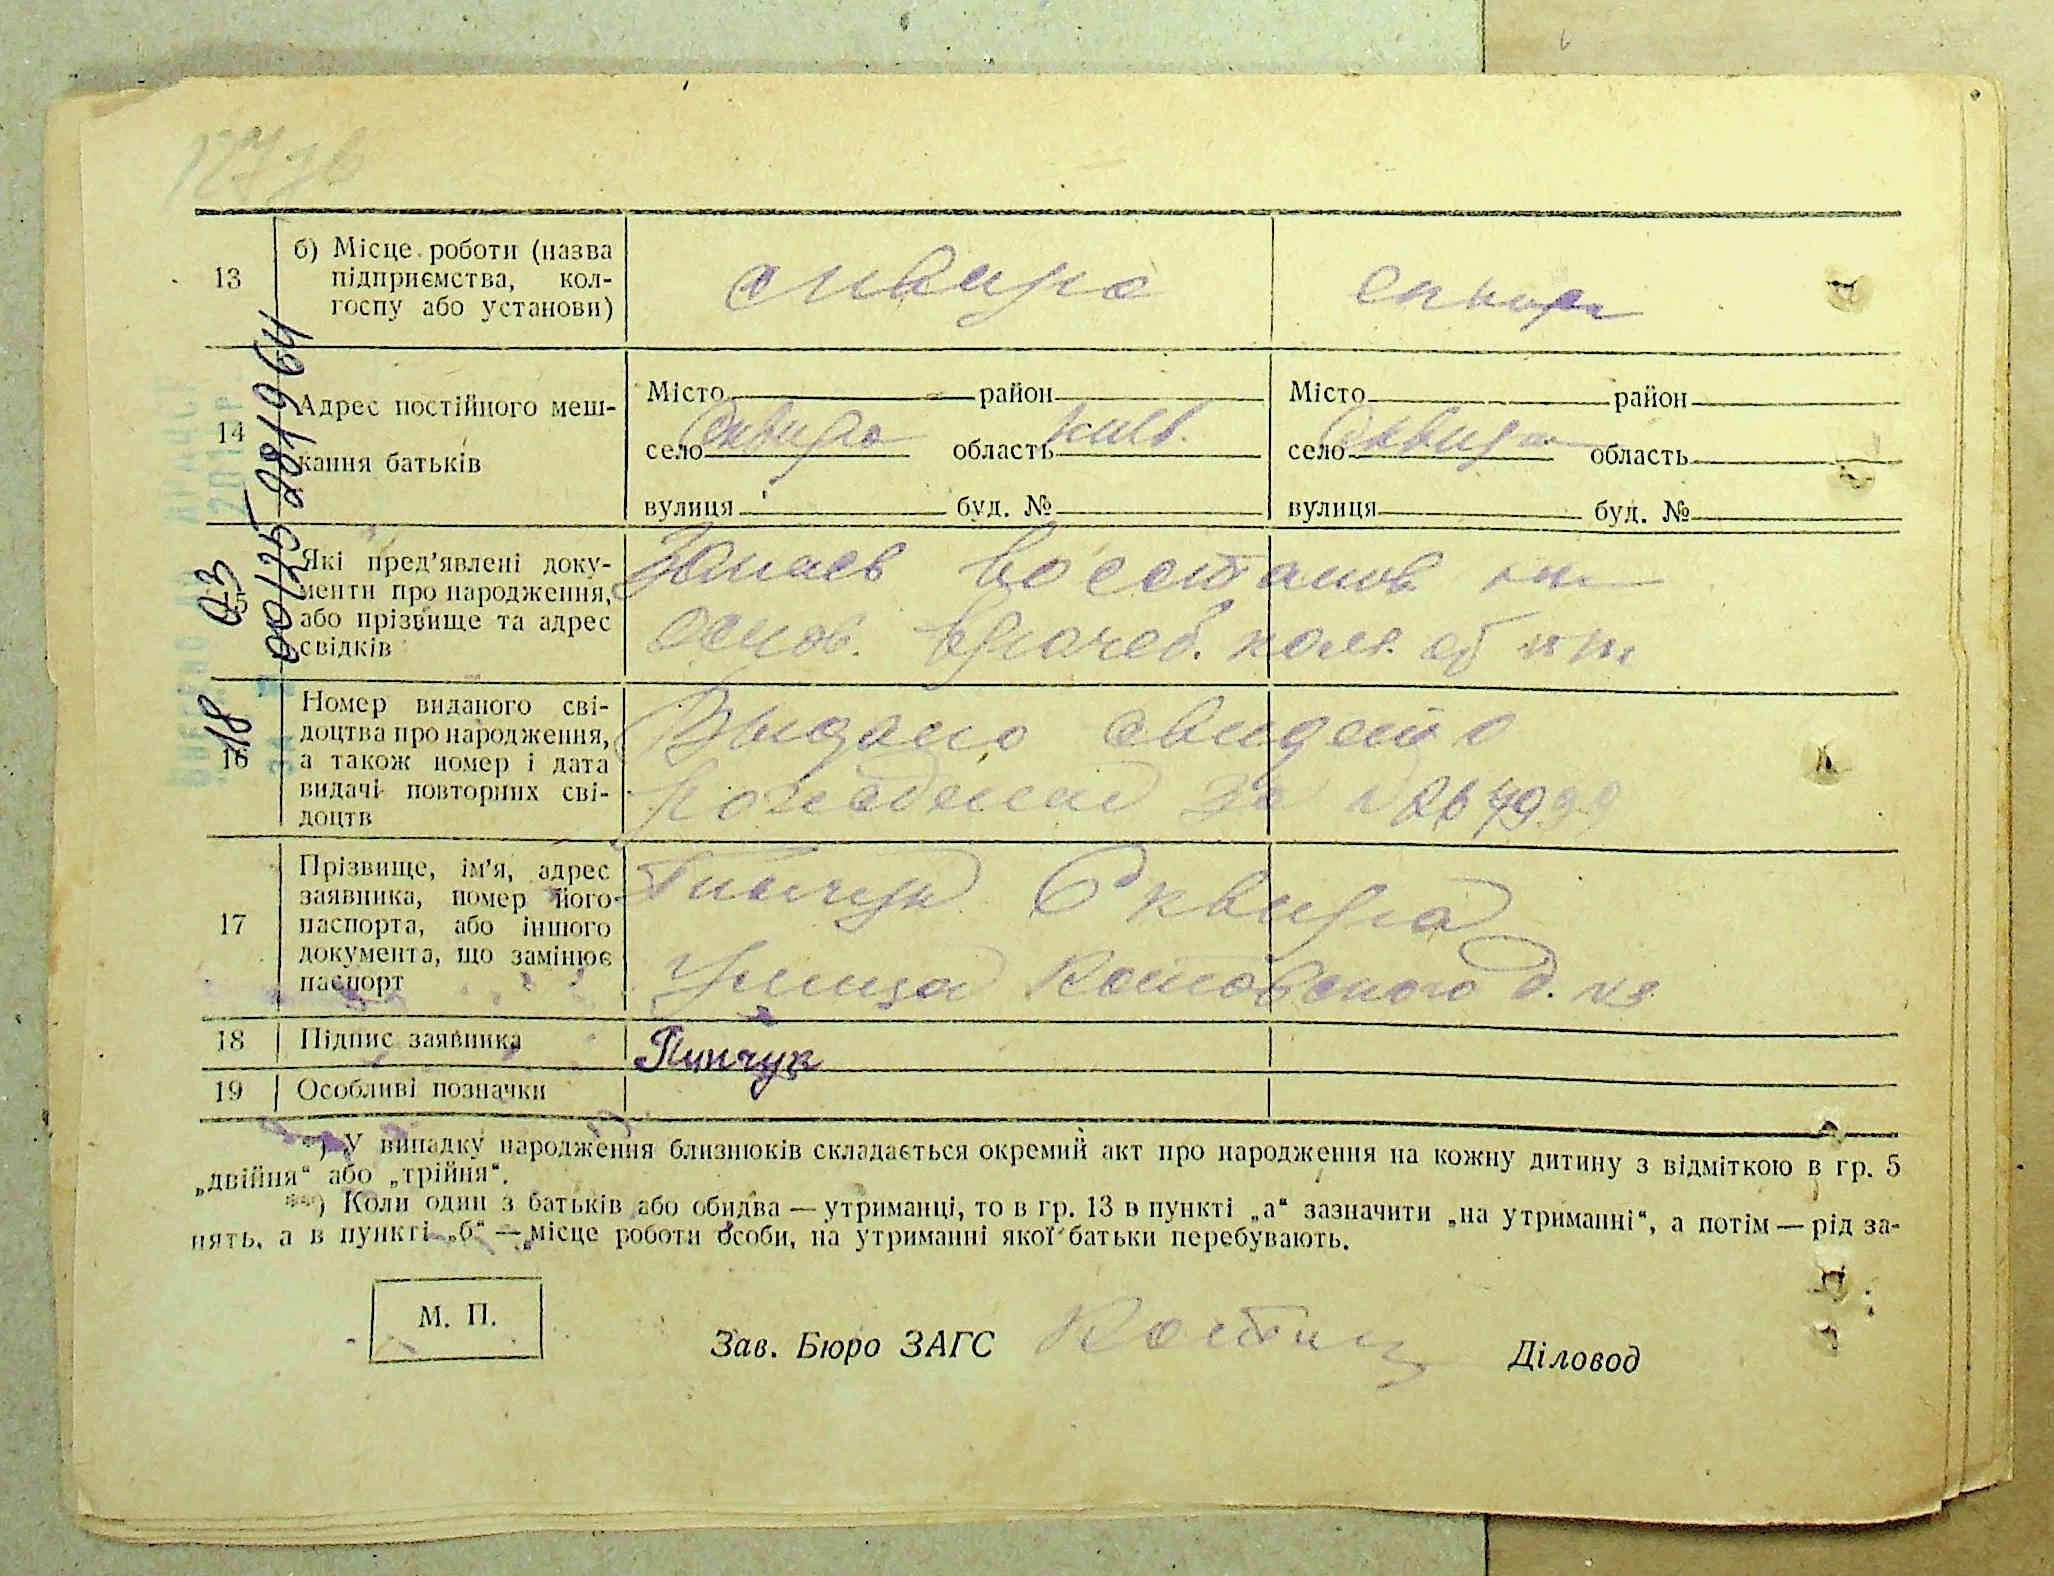 13
б) Місце роботи (назва
підприємства, кол-
госпу або установи)
сквира
сквира
14
Адрес постійного меш-
кання батьків
Місто район
село Сквира область Киев.
вулиця буд. №
Місто район
село Сквира область
вулиця буд. №
Які пред’явлені доку-
менти про народження,
або прізвище та адрес
свідків
восстанов на
основ. врачеб.
16
Номер виданого сві-
доцтва про народження,
а також номер і дата
видачі повторних сві-
доцтв
Выдано свидет о
рождении за
17
Прізвище, ім’я, адрес
заявника, номер його
паспорта, або іншого
документа, що замінює
паспорт
Пинчук Сквира
Улица Котовского д.
18
Підпис заявника
Пинчук
19
Особливі позначки
*) У випадку народження близнюків складається окремий акт про народження на кожну дитину з відміткою в гр. 5
„двійня“ або „трійня“.
**) Коли один з батьків або обидва — утриманці, то в гр. 13 в пункті „а“ зазначити „на утриманні“, а потім — рід за-
нять, а в пункті „б“ — місце роботи особи, на утриманні якої батьки перебувають.
М. П.
Зав. Бюро ЗАГС
Діловод
00125281964